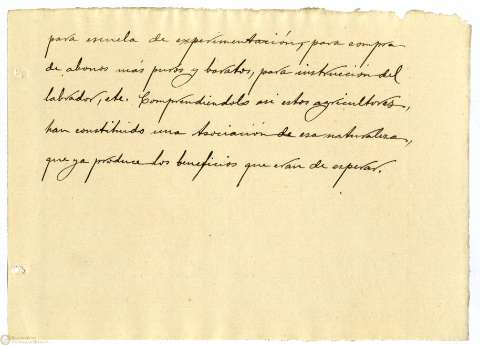 para escuela de experimentación, para compra
de abonos más puros y baratos, para instrucción del
labrador, etc. Comprendiéndolo así estos agricultores,
han constituido una Asociación de esa naturaleza,
que ya produce los beneficios que eran de esperar.